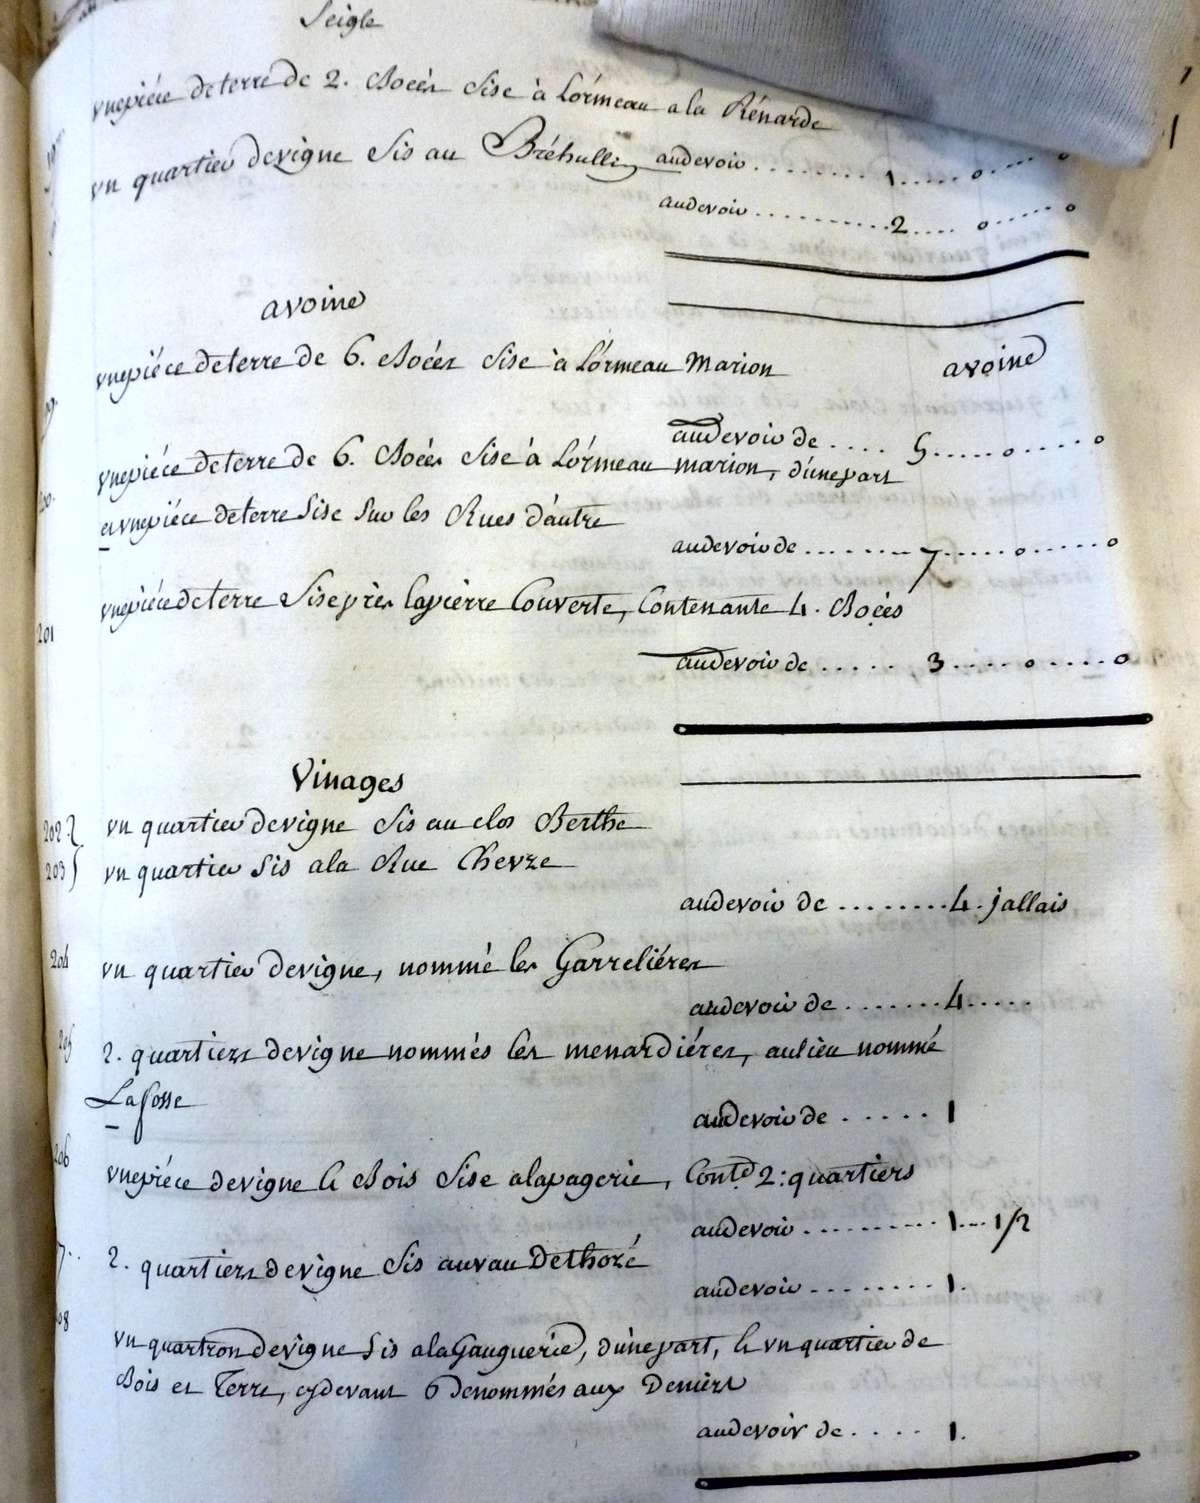 Seigle
vne piéce de terre de 2. Boées Sise à Lórmeau a la Rénarde
au devoir ........ 1 ..... o ..... o
vn quartier de vigne Sis au Bréhulle
au devoir .......... 2 .... o ..... o
avoine
avoine
vne piéce de terre de 6. Boées Sise à Lórmeau Marion
au devoir de .... 5 ..... o ..... o
vne piéce de terre de 6. Boées Sise à Lórmeau marion, d'úne part
200.
et vne piéce de terre Sise Sur les Rues d'áutre
au devoir de ........ 7 ..... o ..... o
vne piéce de terre Sise près la pierre Couverte, Contenante 4. Boées
201
au devoir de ..... 3 .... o .... o
Vinages
202. vn quartier de vigne Sis au clos Berthe
203 vn quartier Sis a la Rue Chevze
au devoir de ........ 4. jallais
204 vn quartier de vigne, nommé les Garreliéres
au devoir de ....... 4 .....
205 2. quartiers de vigne nommés les menardiéres, au lieu nommé
La fosse
au devoir de ..... 1
206 vne piéce de vigne & Bois Sise a la pagerie, Conte.d 2: quartiers
au devoir .......... 1 ... 1/2
7.. 2. quartiers de vigne Sis au vau Dethoré
au devoir ......... 1.
08 vn quartron de vigne Sis a la Gauguerie, d'úne part, & vn quartier de
Bois et Terre, cy devant 6 denommés aux Deniers
au devoir de .... 1.